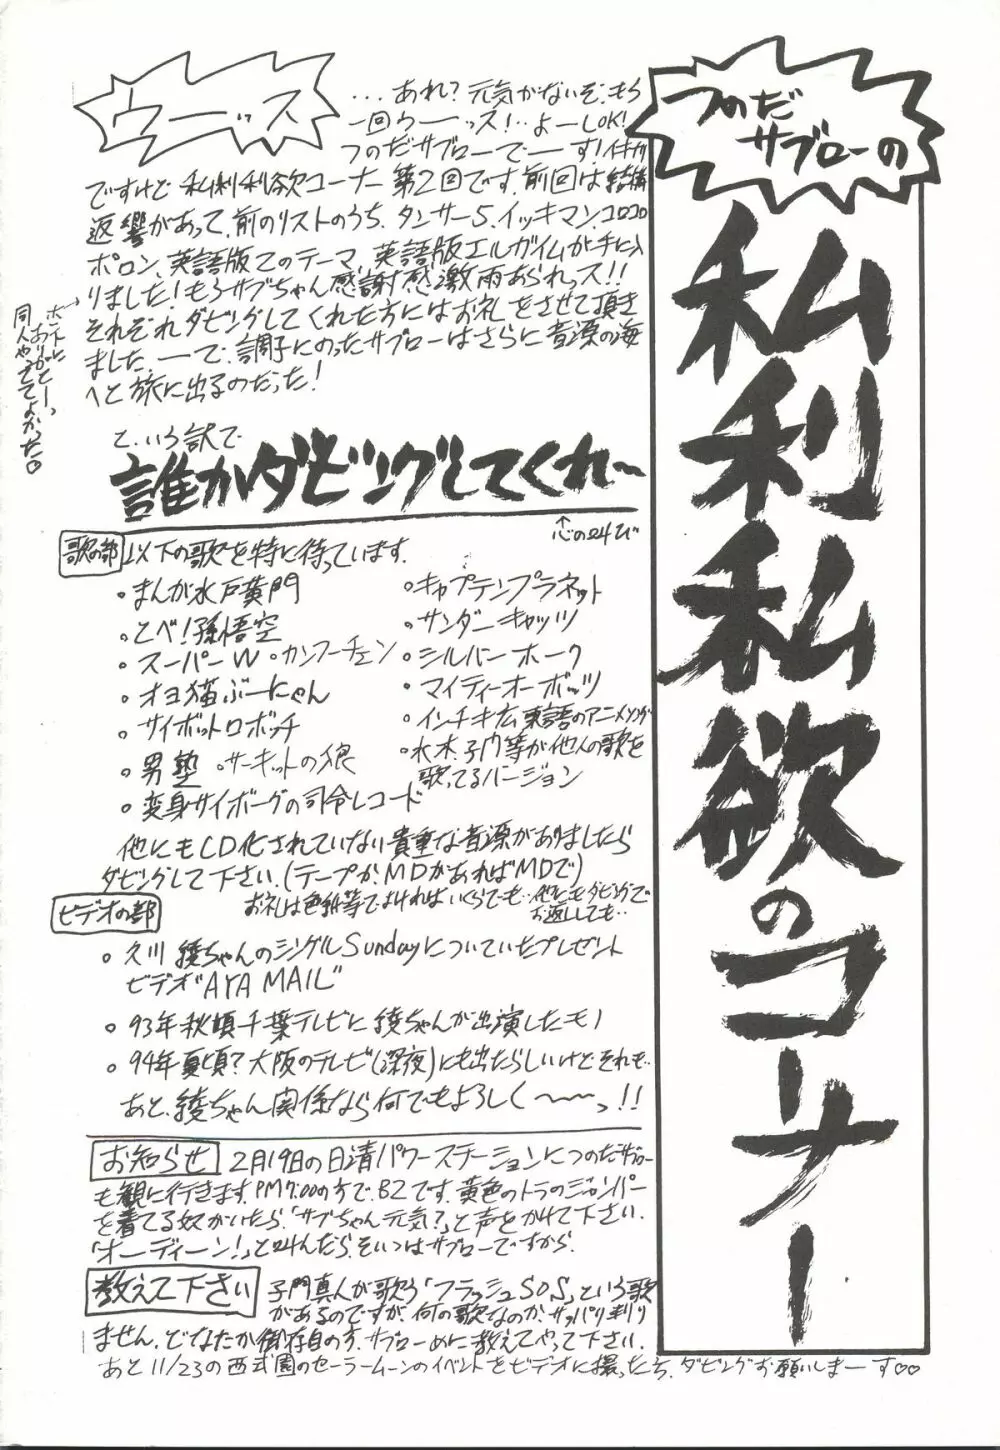 つのだ
サブローの
私利私欲のコーナー
ウーッス
…あれ?元気がないぞ、もう
一回ウーッス!…よーしOK!
つのだサブローでーーす!イキナリ
ですけど私利私欲コーナー第2回です。前回は結構
返響があって、前のリストのうち、タンサー5、イッキマン、コロコロ
ポロン、英語版Zのテーマ、英語版エルガイムが手に入
りました!もうサブちゃん感謝感激雨あられっス!!
それぞれダビングしてくれた方にはお礼をさせて頂き
ました。ーーで、調子にのったサブローはさらに音源の海
へと旅に出るのだった!
ホントに
ありがとーっ
同人やっててよかった♡
と、いう訳で
誰かダビングしてくれ〜
↑心の叫び
歌の部 以下の歌を特に待っています。
・まんが水戸黄門
・とべ!孫悟空
・スーパーW ・カンフーチェン
・オヨ猫ぶーにゃん
・サイボットロボッチ
・男塾 ・サーキットの狼
・変身サイボーグの司令レコード
・キャプテンプラネット
・サンダーキャッツ
・シルバーホーク
・マイティーオーボッツ
・インチキ広東語のアニメソング
・水木、子門等が他人の歌を
歌ってるバージョン
他にもCD化されていない貴重な音源がありましたら
ダビングして下さい。(テープか、MDがあればMDで)
お礼は色紙等でよければいくらでも…他にもダビングで
お返ししても…
ビデオの部
・久川綾ちゃんのシングルSundayについていたプレゼント
ビデオ"AYA MAIL"
・93年秋頃千葉テレビに綾ちゃんが出演したモノ
・94年夏頃?大阪のテレビ(深夜)にも出たらしいけどそれも…
あと、綾ちゃん関係なら何でもよろしく〜〜っ!!
お知らせ 2月19日の日清パワーステーションにつのだサブロー
も観に行きます。PM7:00の方で、B2です。黄色のトラのジャンパー
を着てる奴がいたら、「サブちゃん元気?」と声をかけて下さい。
「オーディーン!」と叫んだら、そいつはサブローですから。
教えて下さい 子門真人が歌う「フラッシュSOS」という歌
があるのですが、何の歌なのか、サッパリ判り
ません。どなたか御存自の方、サブローめに教えてやって下さい。
あと11/23の西武園のセーラームーンのイベントをビデオに撮った方、ダビングお願いしまーす♡♡